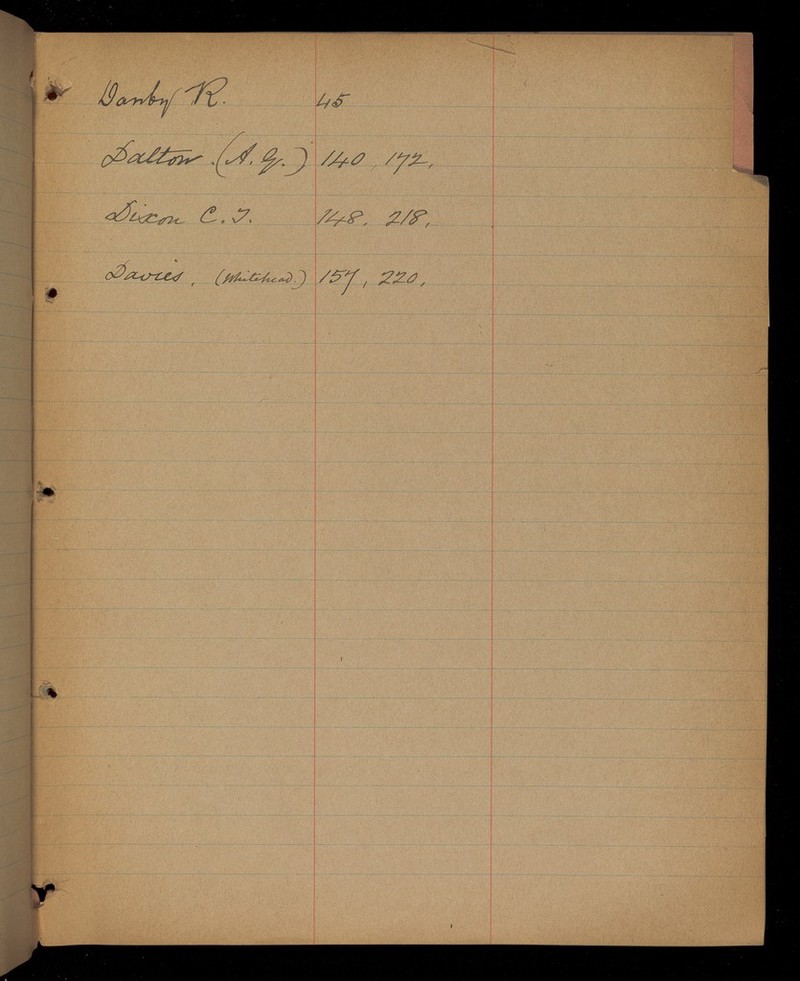 Danby R. 45
Dalton. (A. G.) 140, 172,
Dixon C. J. 148, 218,
Davies, (Whitehead.) 157, 220,